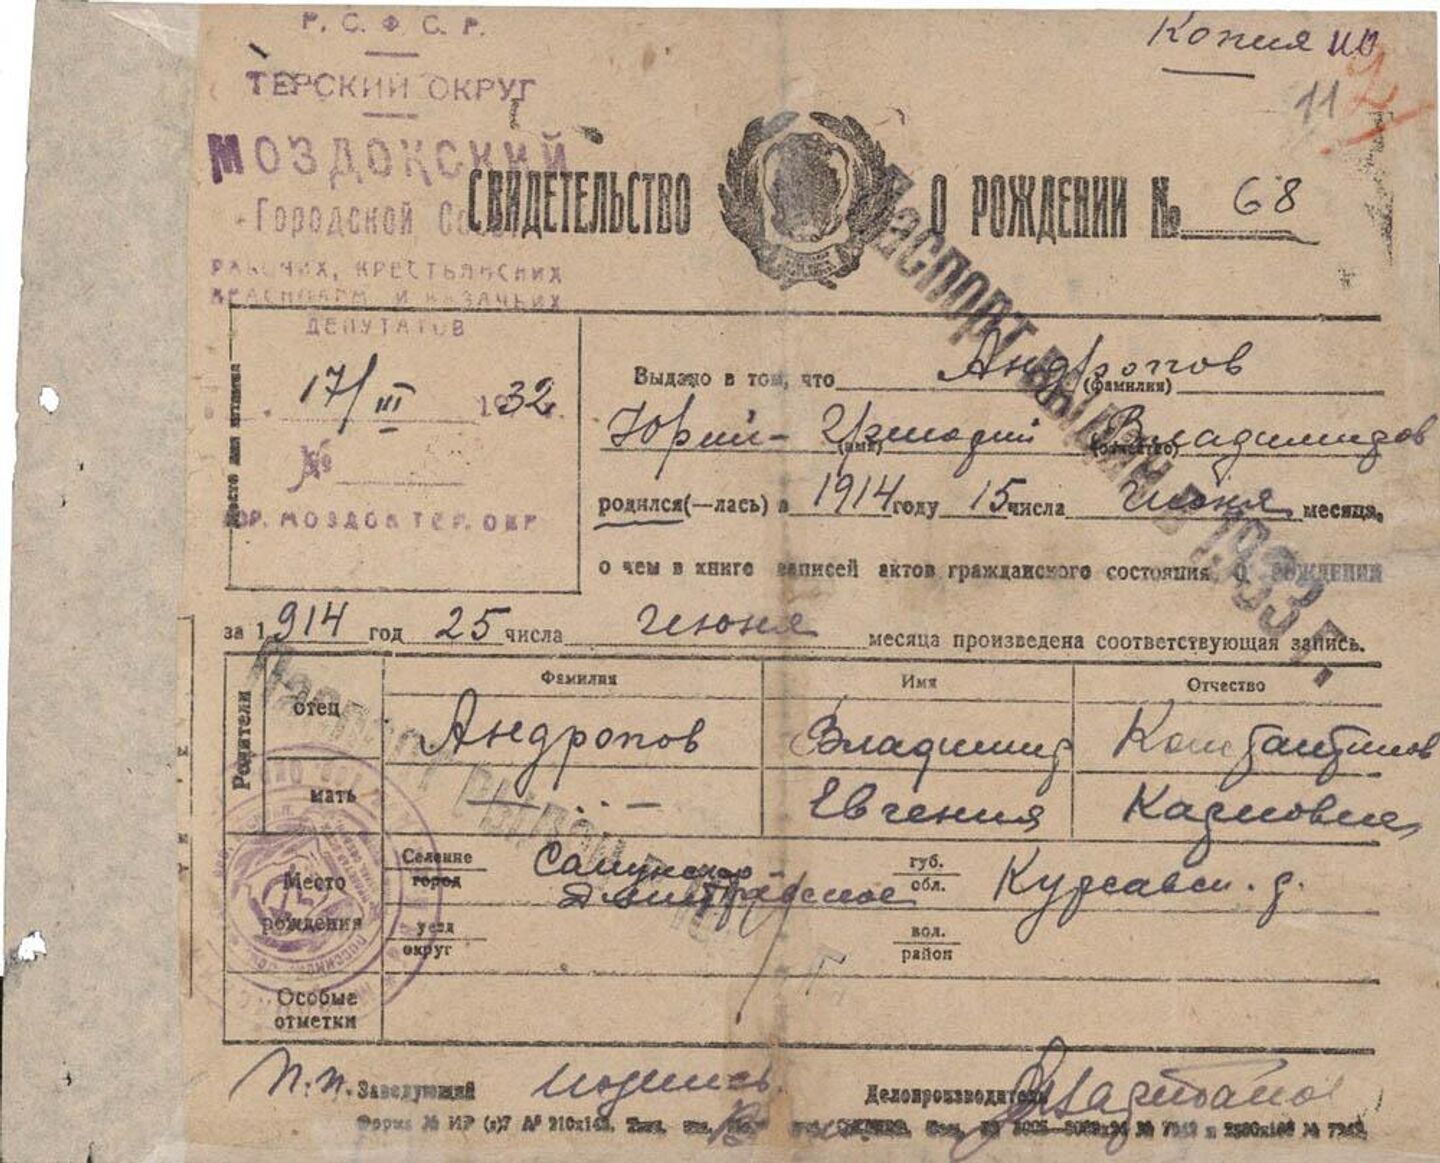 Р. С. Ф. С. Р.
Копия
11
ТЕРСКИЙ ОКРУГ
МОЗДОКСКИЙ
СВИДЕТЕЛЬСТВО О РОЖДЕНИИ № 68
Городской
РАБОЧИХ, КРЕСТЬЯНСКИХ
КРАСНОАРМ. И КАЗАЧЬИХ
ДЕПУТАТОВ
17/III 1932 г.
№
ГОР. МОЗДОК ТЕР. ОКР
Выдано в том, что Андропов
(фамилия)
Юрий-Григорий Владимиров
(имя) (отчество)
родился(—лась) в 1914 году 15 числа Июня месяца,
о чем в книге записей актов гражданского состояния о рождении
за 1914 год 25 числа Июня месяца произведена соответствующая запись.
Паспорт выдан в 1933 г.
Родители
Фамилия Имя Отчество
отец Андропов Владимир Константинов
мать — .. — Евгения Карловна
Место рождения
Селение город
губ. обл. Курсавск. р.
уезд округ
вол. район
Особые отметки
п.п. Заведующий подпись Делопроизводитель